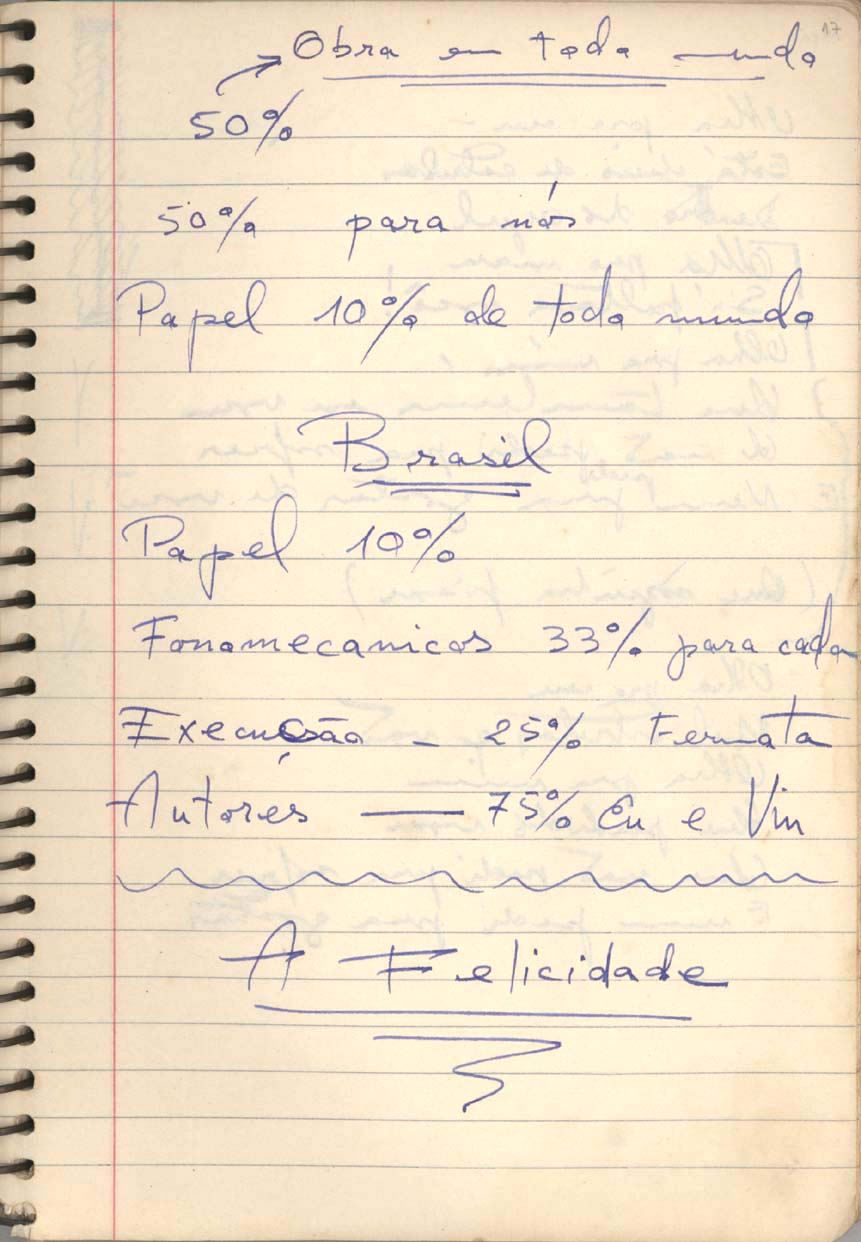 17
Obra em todo mundo
50%
50% para nós
Papel 10% de todo mundo
Brasil
Papel 10%
Fonomecanicos 33% para cada
Execução - 25% Fermata
Autores — 75% Eu e Vin
A Felicidade